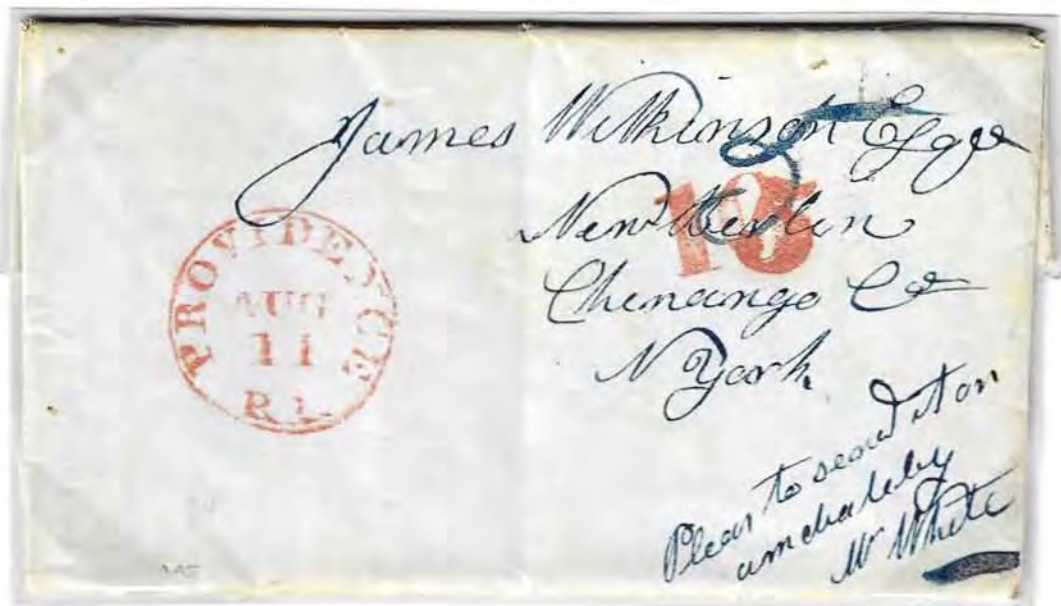 James Wilkinson Esqr
New Berlin
Chenango Co
N York
PROVIDENCE
AUG
11
R.I.
10
5
Pleas to seand it on
amebateby
Mr White